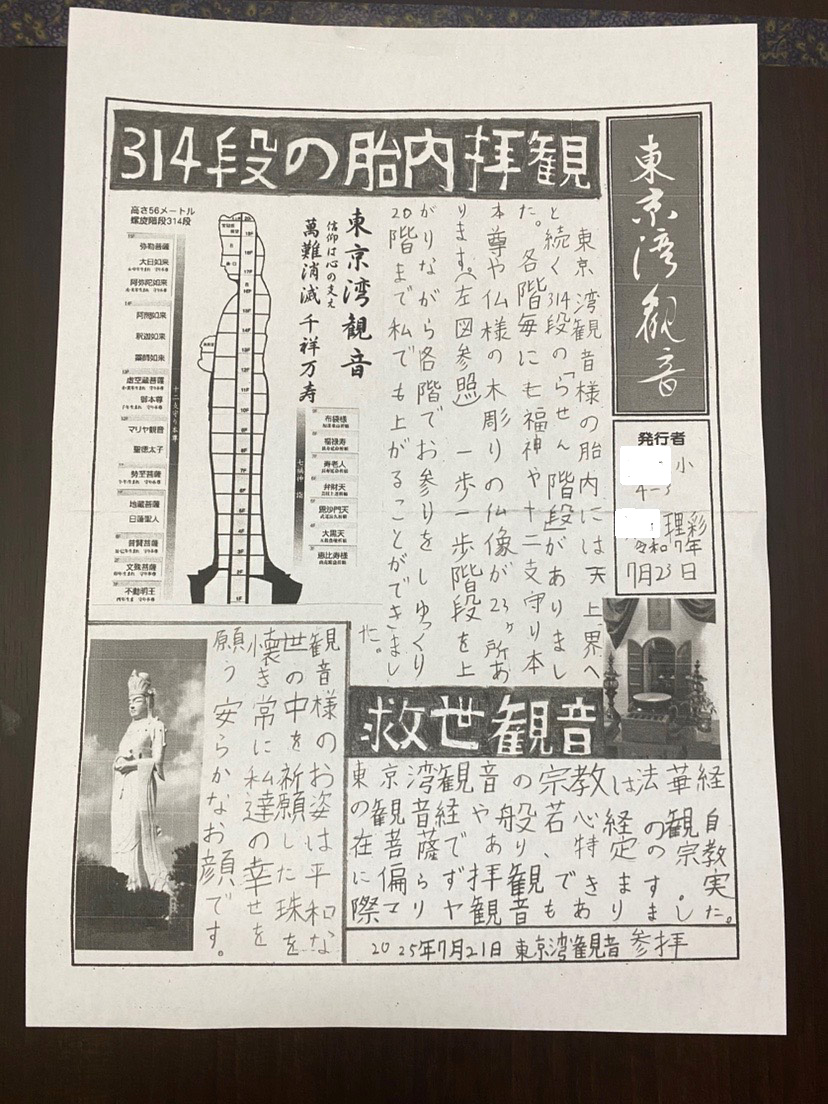 314段の胎内拝観
東京湾観音
発行者
小
4-3
理彩
令和7年
7月23日
東京湾観音様の胎内には天上界へ
と続く314段の「らせん階段」がありまし
た。各階毎に七福神や十二支守り本
本尊や仏様の木彫りの仏像が23ヶ所あ
ります。(左図参照)一歩一歩階段を上
がりながら各階でお参りをしゆっくり
20階まで私でも上がることができまし
た。
東京湾観音
信仰は心の支え
萬難消滅 千祥万寿
高さ56メートル
螺旋階段314段
弥勒菩薩
大日如来
阿弥陀如来
阿閦如来
釈迦如来
薬師如来
虚空蔵菩薩
御本尊
マリヤ観音
聖徳太子
勢至菩薩
地蔵菩薩
日蓮聖人
普賢菩薩
文殊菩薩
不動明王
十二支守り本尊
布袋様
福禄寿
寿老人
弁財天
毘沙門天
大黒天
恵比寿様
七福神
救世観音
東京湾観音の宗教は法華経
の観音経や般若心経の観自
在菩薩であり、特定の宗教
に偏らず拝観できます。実
際マリヤ観音もありました。
観音様のお姿は平和な
世の中を祈願した珠を
懐き常に私達の幸せを
願う安らかなお顔です。
2025年7月21日 東京湾観音 参拝